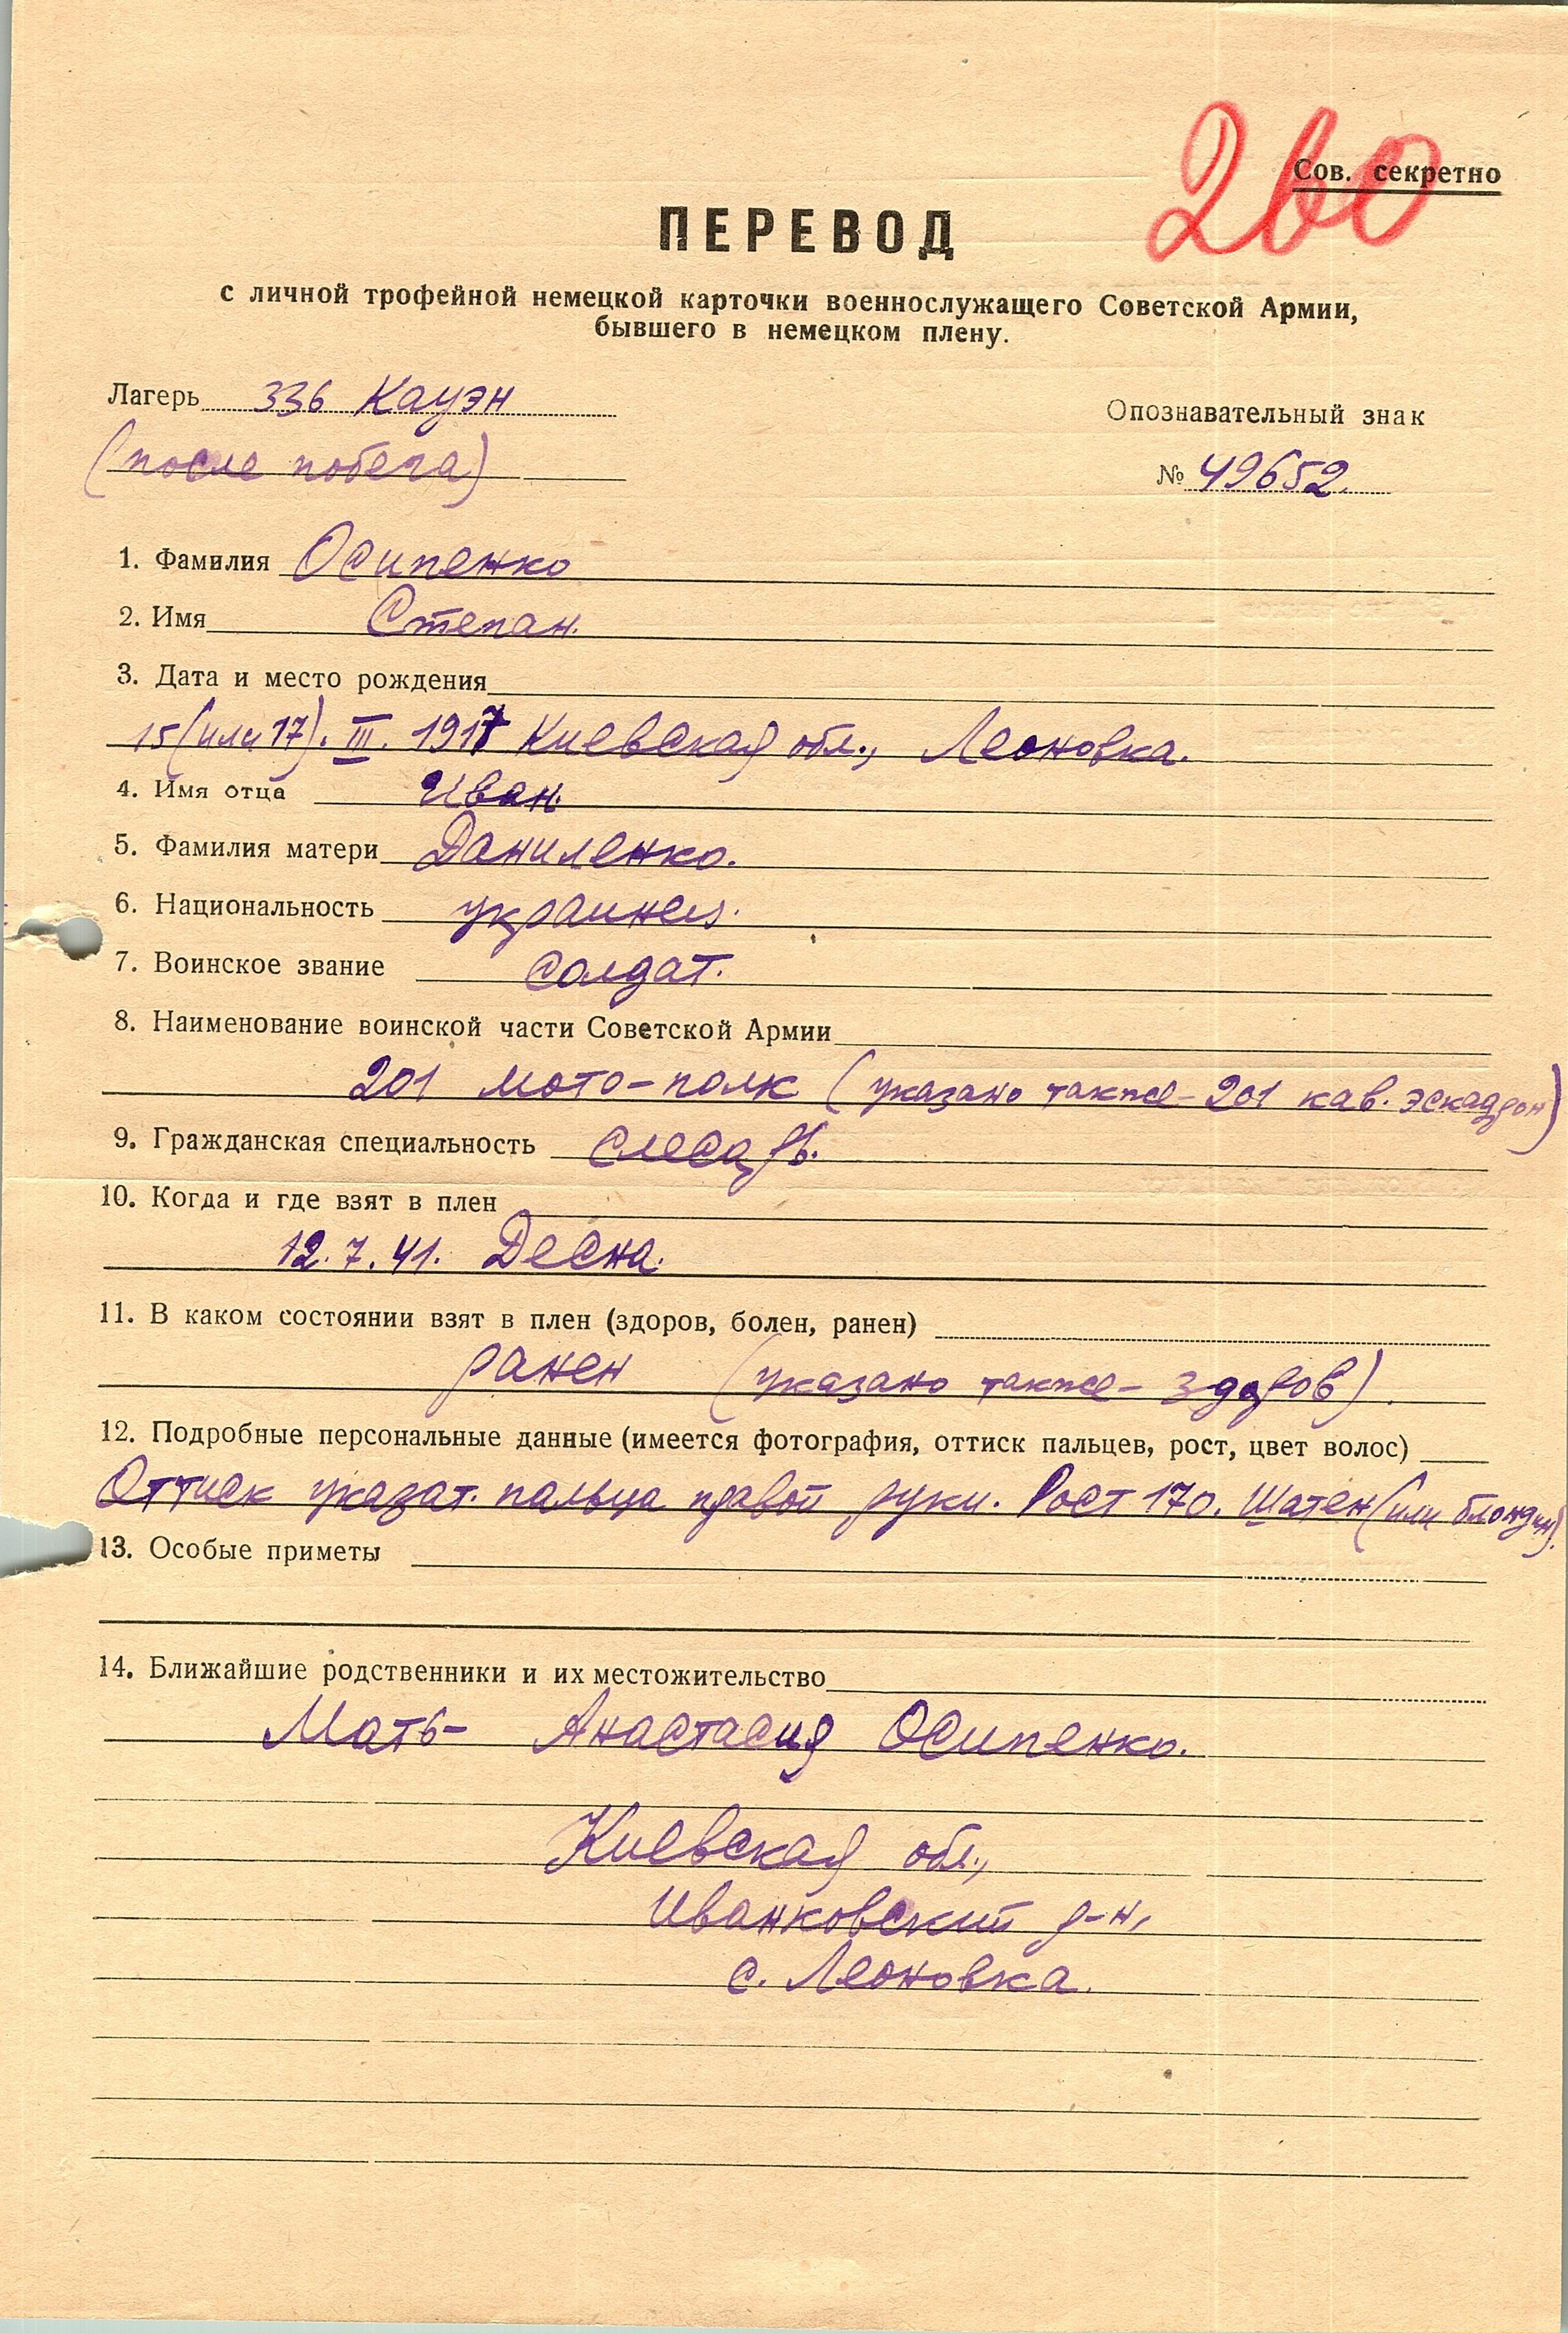 260
Сов. секретно
ПЕРЕВОД
с личной трофейной немецкой карточки военнослужащего Советской Армии,
бывшего в немецком плену.
Лагерь 336 Кауэн
(после побега)
Опознавательный знак
№ 49652.
1. Фамилия Осипенко
2. Имя Степан.
3. Дата и место рождения
15 (или 17). III. 1917 Киевская обл., Леоновка.
4. Имя отца Иван.
5. Фамилия матери Даниленко.
6. Национальность украинец.
7. Воинское звание солдат.
8. Наименование воинской части Советской Армии
201 мото-полк (указано также - 201 кав. эскадрон)
9. Гражданская специальность слесарь.
10. Когда и где взят в плен
12.7.41. Десна.
11. В каком состоянии взят в плен (здоров, болен, ранен)
ранен (указано также - здоров).
12. Подробные персональные данные (имеется фотография, оттиск пальцев, рост, цвет волос)
Оттиск указат. пальца правой руки. Рост 170. Шатен (или блондин).
13. Особые приметы
14. Ближайшие родственники и их местожительство
Мать - Анастасия Осипенко.
Киевская обл.,
Иванковский р-н,
с. Леоновка.